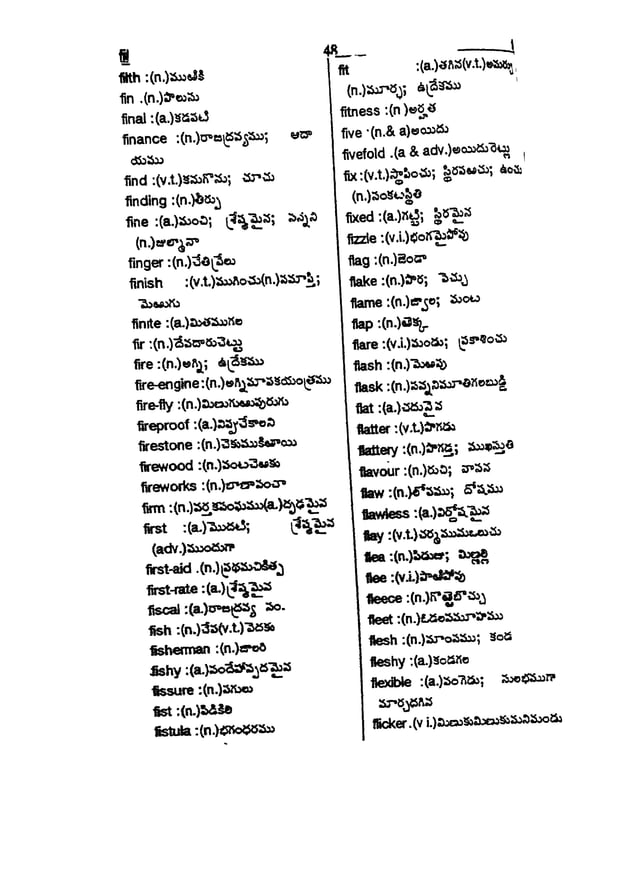 fil
48
filth :(n.)ముఱికి
fin .(n.)పొలుసు
final :(a.)కడపటి
finance :(n.)రాజద్రవ్యము; ఆదా
యము
find :(v.t.)కనుగొను; చూచు
finding :(n.)తీర్పు
fine :(a.)మంచి; శ్రేష్ఠమైన; సన్నని
(n.)జుల్మానా
finger :(n.)చేతివ్రేలు
finish :(v.t.)ముగించు(n.)సమాప్తి;
మెఱుగు
finite :(a.)మితముగల
fir :(n.)దేవదారుచెట్టు
fire :(n.)అగ్ని; ఉద్రేకము
fire-engine :(n.)అగ్నిమాపకయంత్రము
fire-fly :(n.)మిలుగుఱుపురుగు
fireproof :(a.)నిప్పుచేకాలని
firestone :(n.)చెకుముకిఱాయి
firewood :(n.)వంటచెఱకు
fireworks :(n.)బాణాసంచా
firm :(n.)వర్తకసంఘము(a.)దృఢమైన
first :(a.)మొదటి; శ్రేష్ఠమైన
(adv.)ముందుగా
first-aid .(n.)ప్రథమచికిత్స
first-rate :(a.)శ్రేష్ఠమైన
fiscal :(a.)రాజద్రవ్య సం.
fish :(n.)చేప(v.t.)వెదకు
fisherman :(n.)జాలరి
fishy :(a.)సందేహాస్పదమైన
fissure :(n.)పగులు
fist :(n.)పిడికిలి
fistula :(n.)భగంధరము
fit :(a.)తగిన(v.t.)అమర్చు
(n.)మూర్ఛ; ఉద్రేకము
fitness :(n )అర్హత
five (n.& a)అయిదు
fivefold .(a & adv.)అయిదురెట్లు
fix:(v.t.)స్థాపించు; స్థిరపఱుచు; ఉంచు
(n.)సంకటస్థితి
fixed :(a.)గట్టి; స్థిరమైన
fizzle :(v.i.)భంగమైపోవు
flag :(n.)జెండా
flake :(n.)పొర; పెచ్చు
flame :(n.)జ్వాల; మంట
flap :(n.)ఱెక్క
flare :(v.i.)మండు; ప్రకాశించు
flash :(n.)మెఱుపు
flask :(n.)సన్ననిమూతిగలబుడ్డి
flat :(a.)చదునైన
flatter :(v.t.)పొగడు
flattery :(n.)పొగడ్త; ముఖస్తుతి
flavour :(n.)రుచి; వాసన
flaw :(n.)లోపము; దోషము
flawless :(a.)నిర్దోషమైన
flay :(v.t.)చర్మమునుఒలుచు
flea :(n.)పిడుజు; మిల్లల్లి
flee :(v.i.)పాఱిపోవు
fleece :(n.)గొఱ్ఱెబొచ్చు
fleet :(n.)ఓడలసమూహము
flesh :(n.)మాంసము; కండ
fleshy :(a.)కండగల
flexible :(a.)వంగెడు; సులభముగా
మార్చదగిన
flicker .(v i.)మిఱుకుమిఱుకుమనిమండు